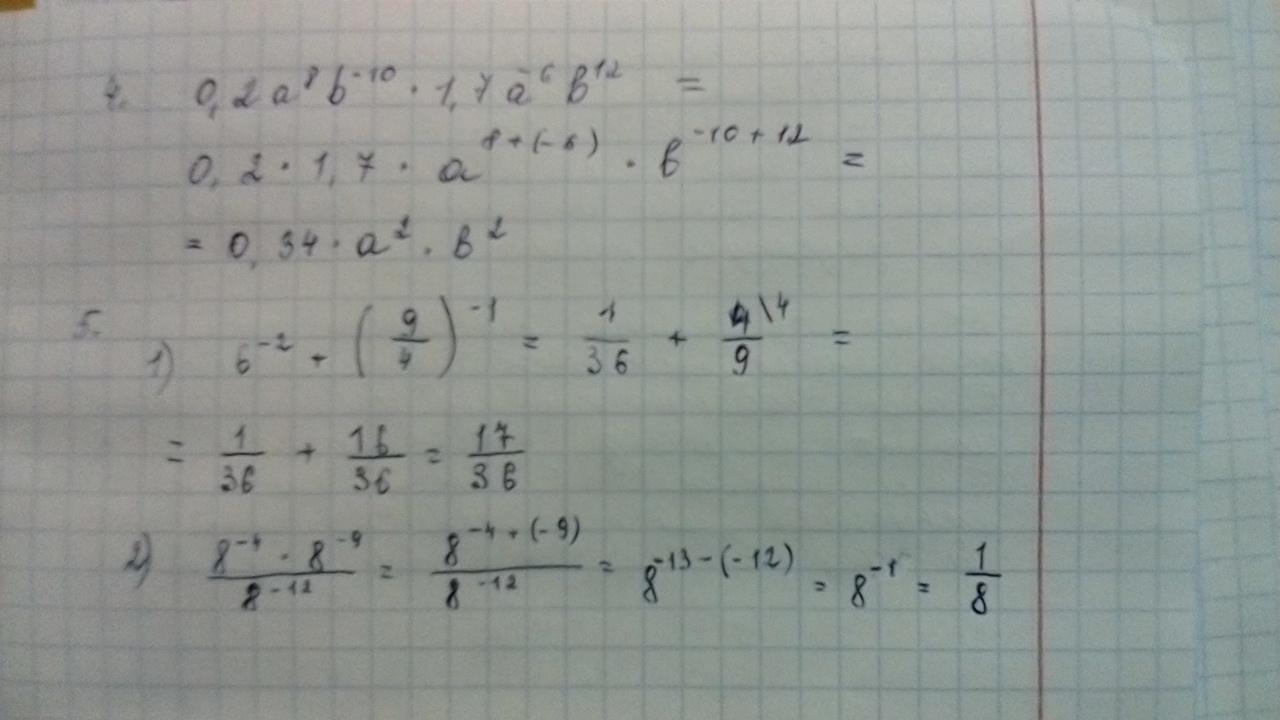 4. 0,2a⁸b⁻¹⁰ · 1,7a⁻⁶b¹² =
0,2 · 1,7 · a⁸⁺⁽⁻⁶⁾ · b⁻¹⁰⁺¹² =
= 0,34 · a² · b²
5.
1) 6⁻² + (9/4)⁻¹ = 1/36 + 4\4/9 =
= 1/36 + 16/36 = 17/36
2) 8⁻⁴ · 8⁻⁹/8⁻¹² = 8⁻⁴⁺⁽⁻⁹⁾/8⁻¹² = 8⁻¹³⁻⁽⁻¹²⁾ = 8⁻¹ = 1/8